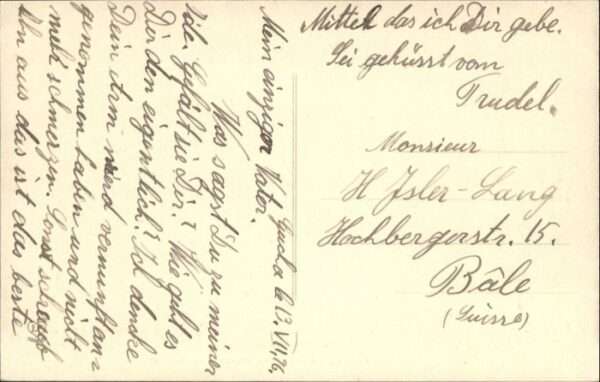 Guda le 13. VII. 16.
Mein einziger Vater.
Was sagst Du zu meiner
Idee. Gefällt sie Dir? Wie geht es
Dir den eigentlich? Ich dencke
Dein Arm wird vernunft an=
genommen haben und nicht
mehr schmerzen. Sonst
ihn aus das ist das beste
Mittel das ich Dir gebe.
Sei geküsst vom
Trudel.
Monsieur
H Isler-Lang
Hochbergerstr. 15.
Bâle
(Suisse)